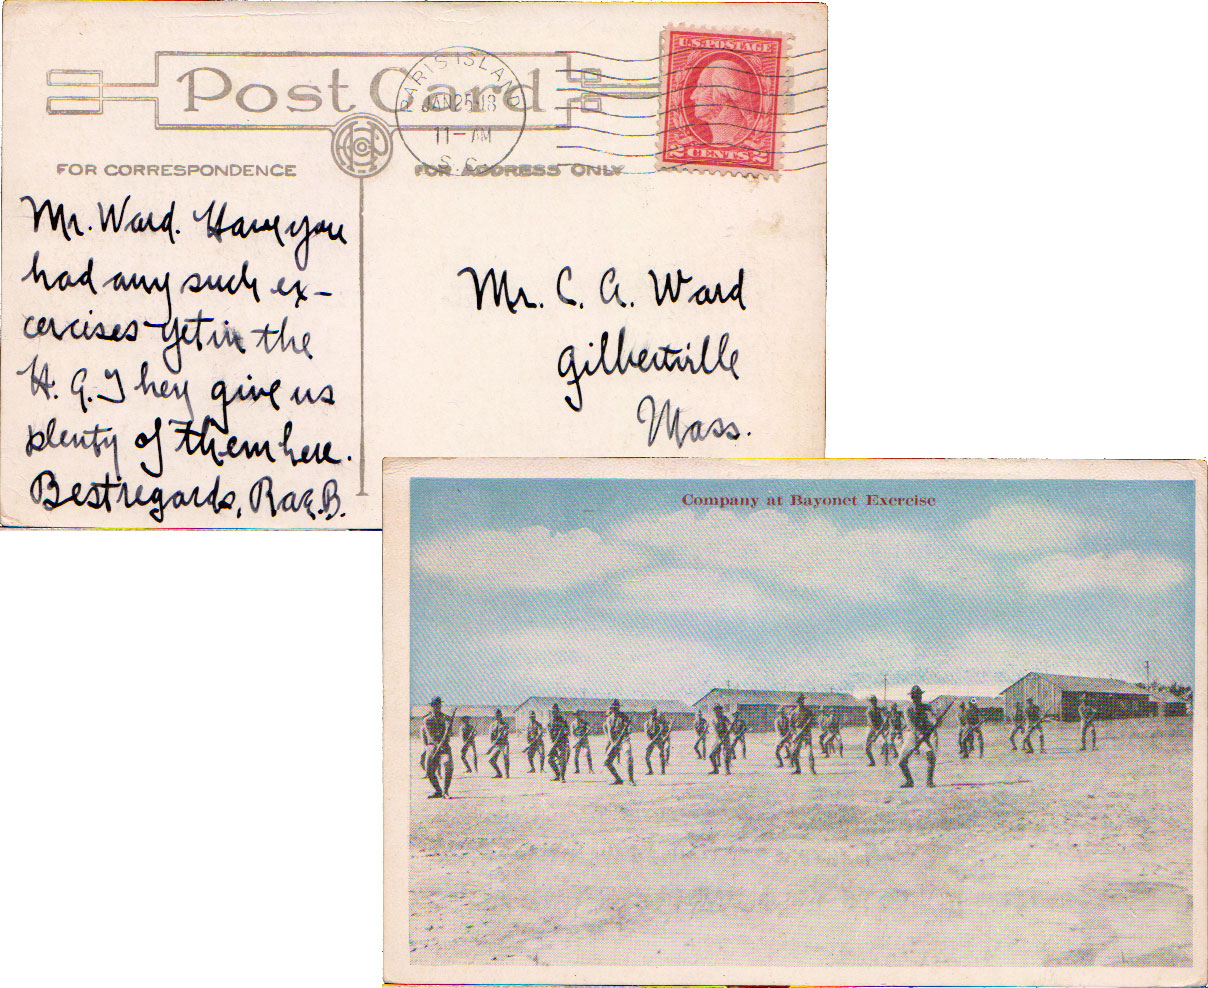 Post Card
PARIS ISLAND
JAN 25 18
11— AM
S. C.
U.S. POSTAGE
2 CENTS 2
FOR CORRESPONDENCE
FOR ADDRESS ONLY
Mr. Ward. Have you
had any such ex-
cercises yet in the
H. G. They give us
plenty of them here.
Best regards, Ray.B.
Mr. C. A. Ward
Gilbertville
Mass.
Company at Bayonet Exercise